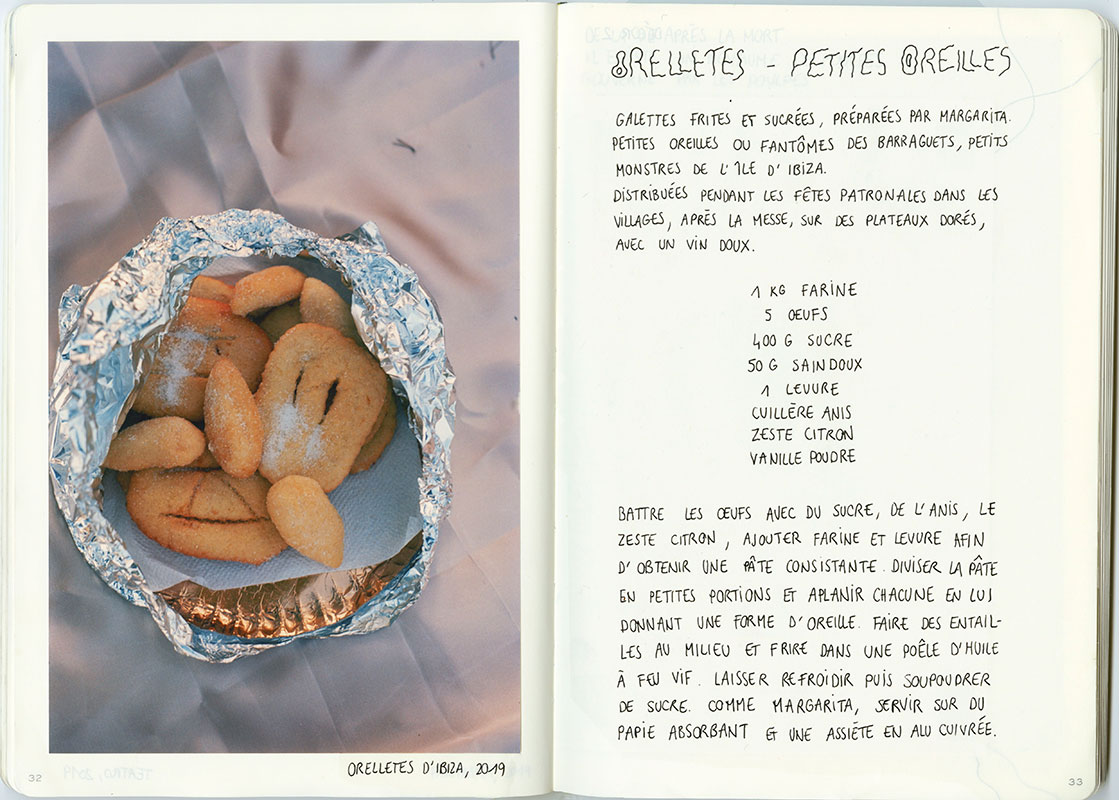 32
ORELLETES D'IBIZA, 2019
ORELLETES - PETITES OREILLES
GALETTES FRITES ET SUCRÉES, PRÉPARÉES PAR MARGARITA.
PETITES OREILLES OU FANTÔMES DES BARRAGUETS, PETITS
MONSTRES DE L'ÎLE D'IBIZA.
DISTRIBUÉES PENDANT LES FÊTES PATRONALES DANS LES
VILLAGES, APRÈS LA MESSE, SUR DES PLATEAUX DORÉS,
AVEC UN VIN DOUX.
1 KG FARINE
5 OEUFS
400 G SUCRE
50 G SAINDOUX
1 LEVURE
CUILLÈRE ANIS
ZESTE CITRON
VANILLE POUDRE
BATTRE LES ŒUFS AVEC DU SUCRE, DE L'ANIS, LE
ZESTE CITRON, AJOUTER FARINE ET LEVURE AFIN
D'OBTENIR UNE PÂTE CONSISTANTE. DIVISER LA PÂTE
EN PETITES PORTIONS ET APLANIR CHACUNE EN LUI
DONNANT UNE FORME D'OREILLE. FAIRE DES ENTAIL-
LES AU MILIEU ET FRIRE DANS UNE POÊLE D'HUILE
À FEU VIF. LAISSER REFROIDIR PUIS SOUPOUDRER
DE SUCRE. COMME MARGARITA, SERVIR SUR DU
PAPIE ABSORBANT ET UNE ASSIÈTE EN ALU CUIVRÉE.
33